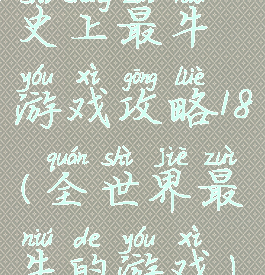 史上最牛
yóu xì gōng lüè
游戏攻略18
quán shì jiè zuì
(全世界最
niú de yóu xì
牛的游戏)